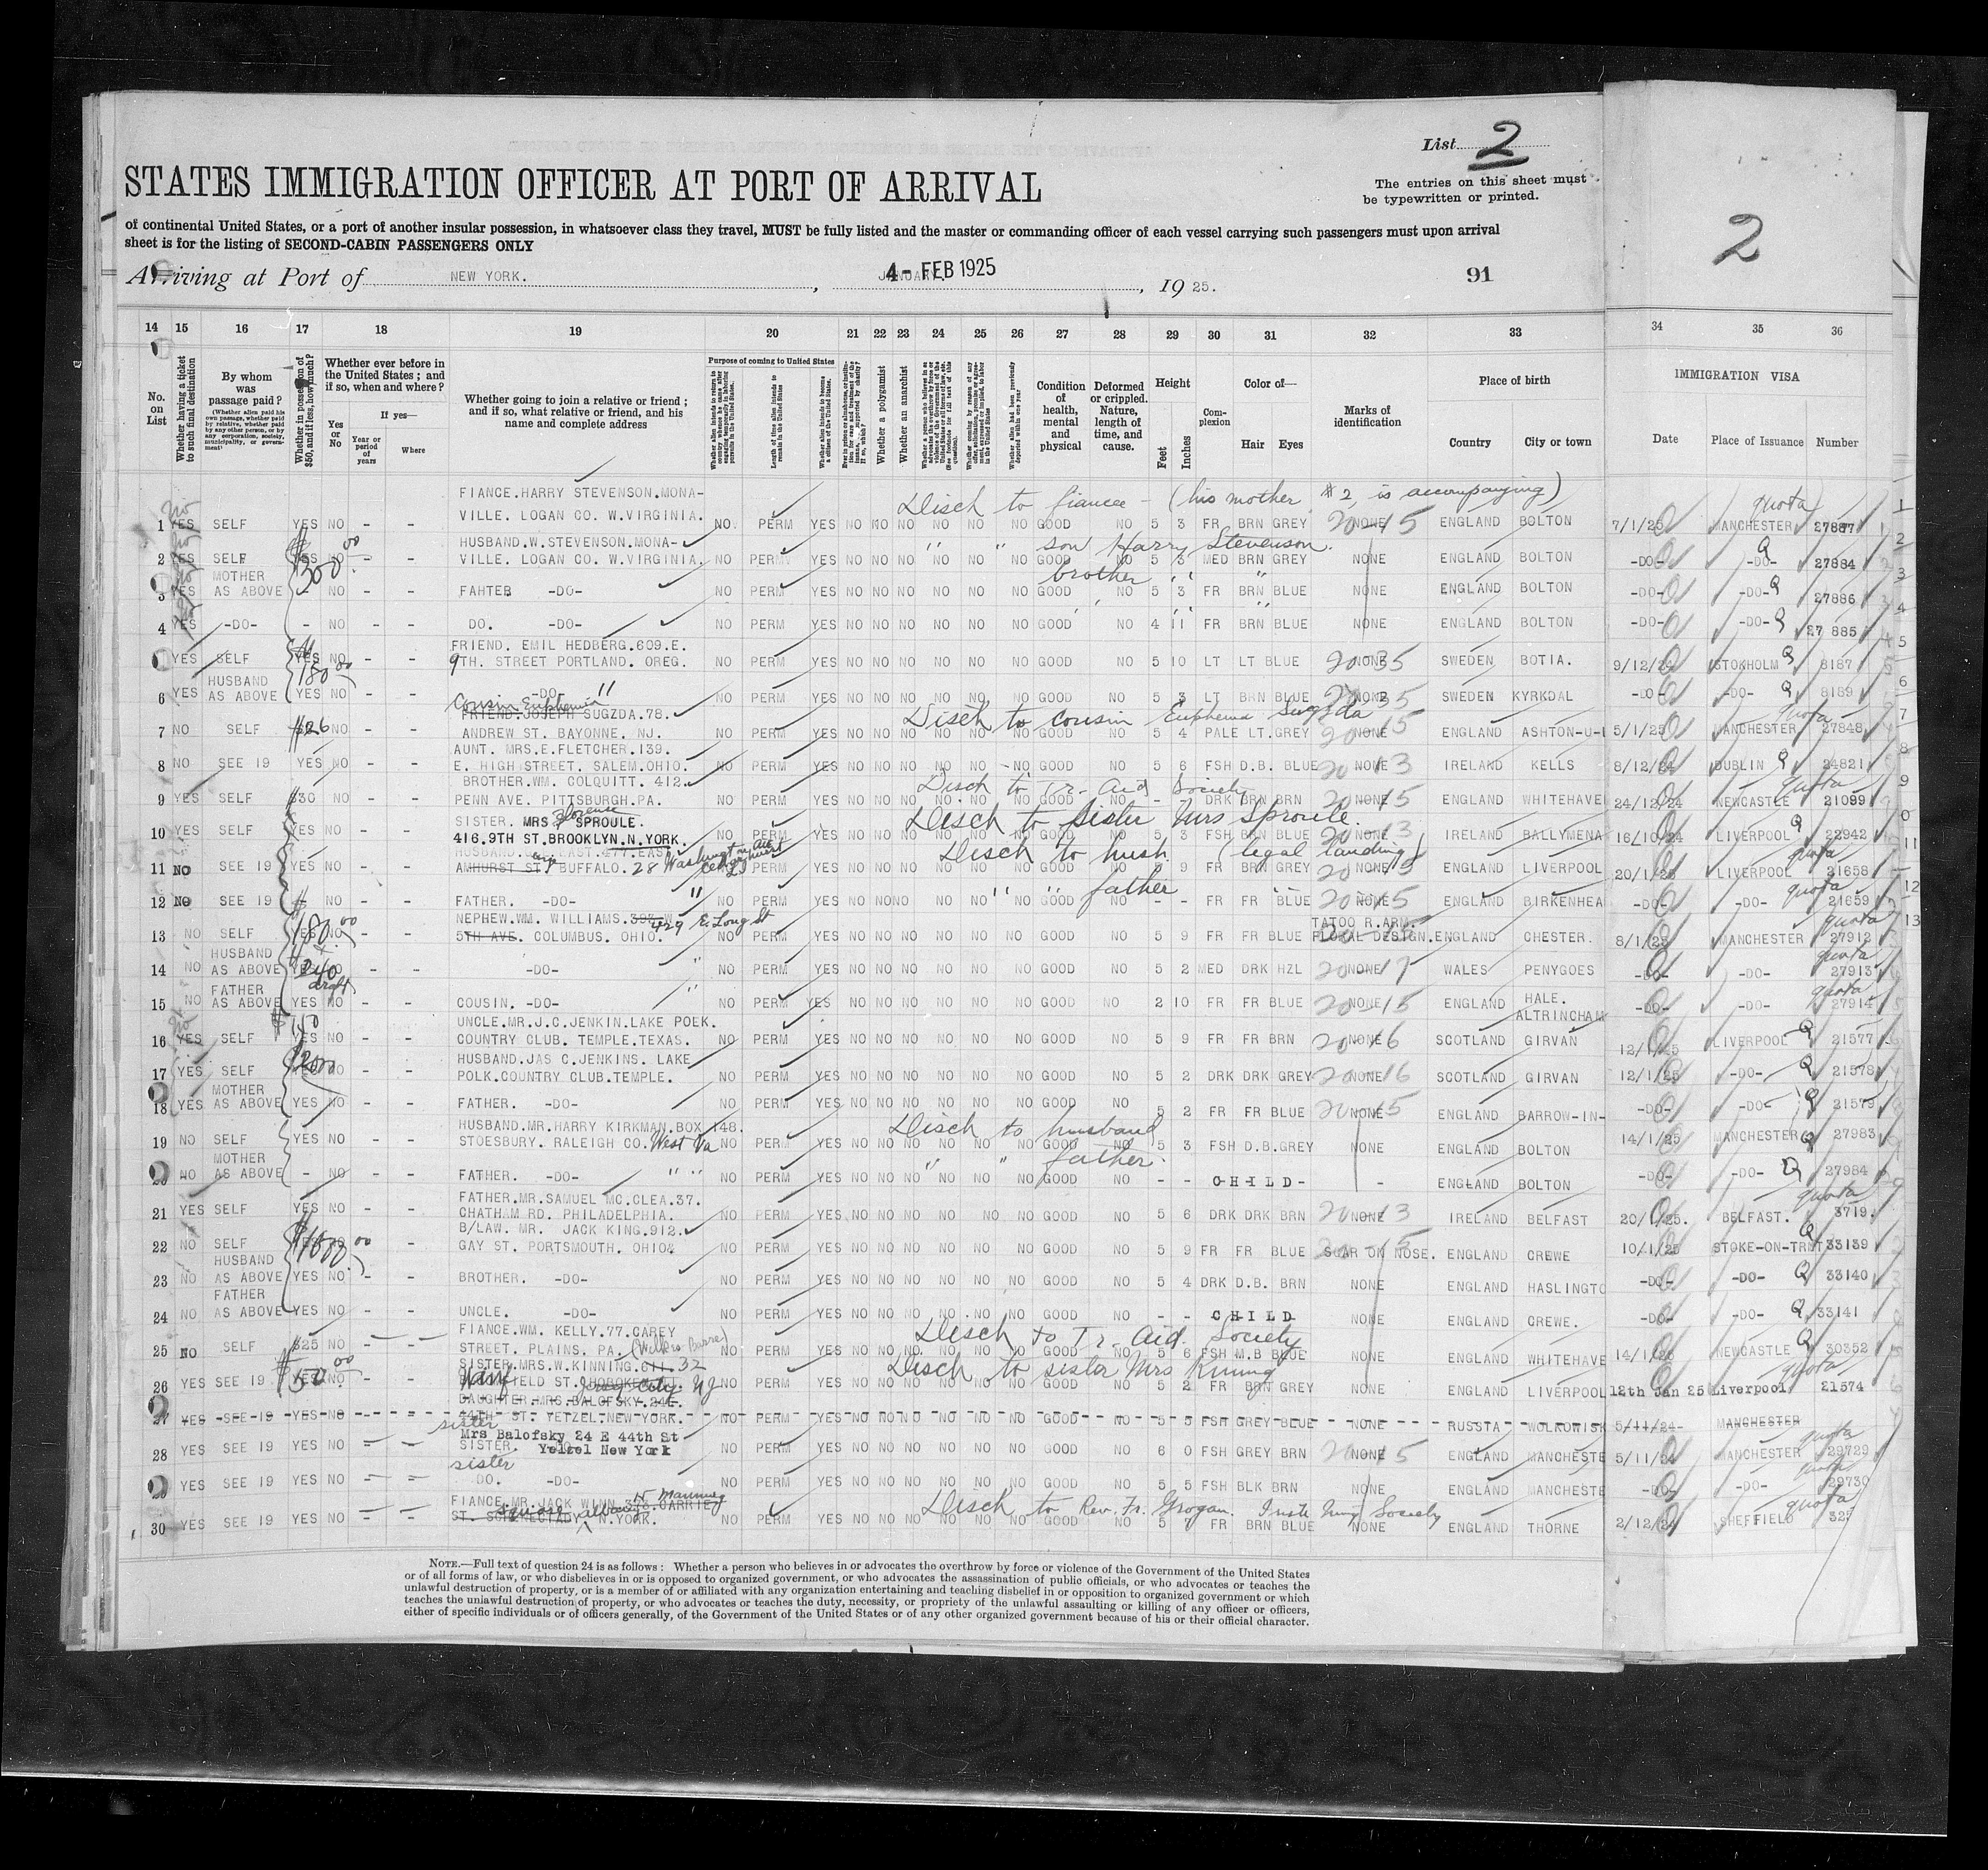 List 2
STATES IMMIGRATION OFFICER AT PORT OF ARRIVAL
The entries on this sheet must
be typewritten or printed.
2
of continental United States, or a port of another insular possession, in whatsoever class they travel, MUST be fully listed and the master or commanding officer of each vessel carrying such passengers must upon arrival
sheet is for the listing of SECOND-CABIN PASSENGERS ONLY
Arriving at Port of NEW YORK. , 4 - FEB 1925 , 19 25. 91
14 15 16 17 18 19 20 21 22 23 24 25 26 27 28 29 30 31 32 33 34 35 36
No. on List
Whether having a ticket to such final destination
By whom was passage paid?
(Whether alien paid his own passage, whether paid by relative, whether paid by any other person, or by any corporation, society, municipality, or government)
Whether in possession of $50, and if less, how much?
Whether ever before in the United States; and if so, when and where?
Yes or No
If yes—
Year or period of years
Where
Whether going to join a relative or friend; and if so, what relative or friend, and his name and complete address
Purpose of coming to United States
Length of time alien intends to remain in the United States
Whether a polygamist
Whether an anarchist
Condition of health, mental and physical
Deformed or crippled. Nature, length of time, and cause.
Height
Feet Inches
Complexion
Color of—
Hair Eyes
Marks of identification
Place of birth
Country City or town
IMMIGRATION VISA
Date Place of Issuance Number
FIANCE.HARRY STEVENSON.MONA- Disch to fiancee - (his mother #2, is accompanying) quota
1 YES SELF YES NO - - VILLE. LOGAN CO. W.VIRGINIA. NO. PERM YES NO NO NO NO NO NO GOOD NO 5 3 FR BRN GREY NONE ENGLAND BOLTON 7/1/25 MANCHESTER 27887
HUSBAND.W.STEVENSON.MONA- " " son Harry Stevenson.
2 YES SELF YES NO - - VILLE. LOGAN CO. W.VIRGINIA. NO PERM YES NO NO NO NO NO NO GOOD NO 5 3 MED BRN GREY NONE ENGLAND BOLTON -DO- -DO- Q 27884
MOTHER brother " "
3 YES AS ABOVE - NO - - FAHTER -DO- NO PERM YES NO NO NO NO NO NO GOOD NO 5 3 FR BRN BLUE NONE ENGLAND BOLTON -DO- -DO- Q 27886
4 YES -DO- - NO - - DO. -DO- NO PERM YES NO NO NO NO NO NO GOOD NO 4 11 FR BRN BLUE NONE ENGLAND BOLTON -DO- -DO- Q 27 885
FRIEND. EMIL HEDBERG.609.E.
YES SELF YES NO - - 9TH. STREET PORTLAND. OREG. NO PERM YES NO NO NO NO NO NO GOOD NO 5 10 LT LT BLUE NONE SWEDEN BOTIA. 9/12/24 STOKHOLM Q 8187
HUSBAND
6 YES AS ABOVE YES NO - - -DO- " NO PERM YES NO NO NO NO NO NO GOOD NO 5 3 LT BRN BLUE NONE SWEDEN KYRKDAL -DO- -DO- Q 8189
Cousin Euphemia
FRIEND.JOSEPH SUGZDA.78. Disch to cousin Euphema Sugzda quota
7 NO SELF $26 NO ANDREW ST. BAYONNE. NJ. NO PERM YES NO NO NO NO NO NO GOOD NO 5 4 PALE LT.GREY NONE ENGLAND ASHTON-U-L 5/1/25 MANCHESTER 27848
AUNT. MRS.E.FLETCHER.139.
8 NO SEE 19 YES NO - - E. HIGH STREET. SALEM.OHIO. NO PERM YES NO NO NO NO NO NO GOOD NO 5 6 FSH D.B. BLUE NONE IRELAND KELLS 8/12/24 DUBLIN Q 24821
BROTHER.WM. COLQUITT. 412. Disch to Tr- Aid Society quota
9 YES SELF $30 NO - - PENN AVE. PITTSBURGH.PA. NO PERM YES NO NO NO NO NO NO GOOD NO - - DRK BRN BRN NONE ENGLAND WHITEHAVE 24/12/24 NEWCASTLE 21099
SISTER. MRS SPROULE. Disch to Sister Mrs Sproule.
10 YES SELF YES NO - - 416.9TH ST.BROOKLYN.N.YORK. NO PERM YES NO NO NO NO NO NO GOOD NO 5 3 FSH BRN BLUE NONE IRELAND BALLYMENA 16/10/24 LIVERPOOL Q 22942
Disch to husb. (legal landing) quota
11 NO SEE 19 YES NO - - AMHURST ST. BUFFALO. 28 PERM YES NO NO NO NO NO NO GOOD NO 9 FR BRN GREY NONE ENGLAND LIVERPOOL 20/1/25 LIVERPOOL 21658
" " " father quota
12 NO SEE 19 - NO - - FATHER. -DO- NO PERM YES NO NO NO NO NO NO GOOD NO - - FR FR BLUE NONE ENGLAND BIRKENHEA -DO- -DO- 21659
NEPHEW.WM. WILLIAMS. 429 E. Long St TATOO R.ARM. quota
13 NO SELF YES NO - - 5TH AVE. COLUMBUS. OHIO. NO PERM YES NO NO NO NO NO NO GOOD NO 5 9 FR FR BLUE FLORAL DESIGN. ENGLAND CHESTER. 8/1/25 MANCHESTER 27912
HUSBAND quota
14 NO AS ABOVE NO - - -DO- " NO PERM YES NO NO NO NO NO NO GOOD NO 5 2 MED DRK HZL NONE WALES PENYGOES -DO- -DO- 27913
FATHER quota
15 NO AS ABOVE YES NO - - COUSIN. -DO- " NO PERM YES NO NO NO NO NO NO GOOD NO 2 10 FR FR BLUE NONE ENGLAND HALE. ALTRINCHAM -DO- -DO- 27914
UNCLE.MR.J.C.JENKIN.LAKE POEK.
16 YES SELF YES NO - - COUNTRY CLUB. TEMPLE.TEXAS. NO PERM YES NO NO NO NO NO NO GOOD NO 5 9 FR FR BRN NONE SCOTLAND GIRVAN 12/1/25 LIVERPOOL Q 21577
HUSBAND.JAS C.JENKINS. LAKE
17 YES SELF NO - - POLK.COUNTRY CLUB.TEMPLE. NO PERM YES NO NO NO NO NO NO GOOD NO 5 2 DRK DRK GREY NONE SCOTLAND GIRVAN 12/1/25 -DO- Q 21578
MOTHER
18 YES AS ABOVE YES NO - - FATHER. -DO- NO PERM YES NO NO NO NO NO NO GOOD NO 5 2 FR FR BLUE NONE ENGLAND BARROW-IN- -DO- -DO- Q 21579
HUSBAND.MR.HARRY KIRKMAN.BOX 148. Disch to husband
19 NO SELF YES NO - - STOESBURY. RALEIGH CO. West Va NO PERM YES NO NO NO NO NO NO GOOD NO 5 3 FSH D.B.GREY NONE ENGLAND BOLTON 14/1/25 MANCHESTER Q 27983
MOTHER " " father.
NO AS ABOVE - NO - - FATHER. -DO- " " NO PERM YES NO NO NO NO NO NO GOOD NO - - CHILD - - ENGLAND BOLTON -DO- -DO- Q 27984
FATHER.MR.SAMUEL MC.CLEA.37. quota
21 YES SELF YES NO - - CHATHAM RD. PHILADELPHIA. NO PERM YES NO NO NO NO NO NO GOOD NO 5 6 DRK DRK BRN NONE IRELAND BELFAST 20/1/25. BELFAST. 3719.
B/LAW. MR. JACK KING.912.
22 NO SELF $1600.00 - - GAY ST. PORTSMOUTH. OHIO. NO PERM YES NO NO NO NO NO NO GOOD NO 5 9 FR FR BLUE SCAR ON NOSE. ENGLAND CREWE 10/1/25 STOKE-ON-TRNT Q 33139
HUSBAND
23 NO AS ABOVE YES NO - - BROTHER. -DO- NO PERM YES NO NO NO NO NO NO GOOD NO 5 4 DRK D.B. BRN NONE ENGLAND HASLINGTO -DO- -DO- Q 33140
FATHER
24 NO AS ABOVE YES NO - - UNCLE. -DO- NO PERM YES NO NO NO NO NO NO GOOD NO - - CHILD NONE ENGLAND CREWE. -DO- -DO- Q 33141
FIANCE.WM. KELLY.77.CAREY Disch to Tr- Aid. Society
25 NO SELF $25 NO - - STREET. PLAINS. PA. (Wilkes Barre) NO PERM YES NO NO NO NO NO NO GOOD NO 5 6 FSH M.B BLUE NONE ENGLAND WHITEHAVE 14/1/25 NEWCASTLE Q 30352
SISTER.MRS.W.KINNING.611. 32 Disch to sister Mrs Kinning quota
26 YES SEE 19 $50.00 YES NO - - FIELD ST. Jersey City. NJ NO PERM YES NO NO NO NO NO NO GOOD NO 5 2 FR BRN GREY NONE ENGLAND LIVERPOOL 12th Jan 25 Liverpool 21574
DAUGHTER.MRS.BALOFSKY.24E.
27 YES SEE 19 YES NO 44TH ST. YETZEL.NEW YORK. NO PERM YES NO NO NO NO NO NO GOOD NO 5 5 FSH GREY BLUE NONE RUSSIA WOLKOWISK 5/11/24 MANCHESTER
sister Mrs Balofsky 24 E 44th St quota
28 YES SEE 19 YES NO - - SISTER. Yetzel New York NO PERM YES NO NO NO NO NO NO GOOD NO 6 0 FSH GREY BRN NONE ENGLAND MANCHESTE 5/11/24 MANCHESTER 29729
sister quota
YES SEE 19 YES NO - - DO. -DO- NO PERM YES NO NO NO NO NO NO GOOD NO 5 5 FSH BLK BRN NONE ENGLAND MANCHESTE -DO- -DO- 29730
FIANCE.MR.JACK WINN. Disch to Rev. Fr. Grogan. Society quota
30 YES SEE 19 YES NO - - ST. SCHENECTADY Albany N.YORK. NO PERM YES NO NO NO NO NO NO GOOD NO 5 FR BRN BLUE NONE ENGLAND THORNE 2/12/24 SHEFFIELD 325
NOTE.—Full text of question 24 is as follows: Whether a person who believes in or advocates the overthrow by force or violence of the Government of the United States
or of all forms of law, or who disbelieves in or is opposed to organized government, or who advocates the assassination of public officials, or who advocates or teaches the
unlawful destruction of property, or is a member of or affiliated with any organization entertaining and teaching disbelief in or opposition to organized government or which
teaches the unlawful destruction of property, or who advocates or teaches the duty, necessity, or propriety of the unlawful assaulting or killing of any officer or officers,
either of specific individuals or of officers generally, of the Government of the United States or of any other organized government because of his or their official character.